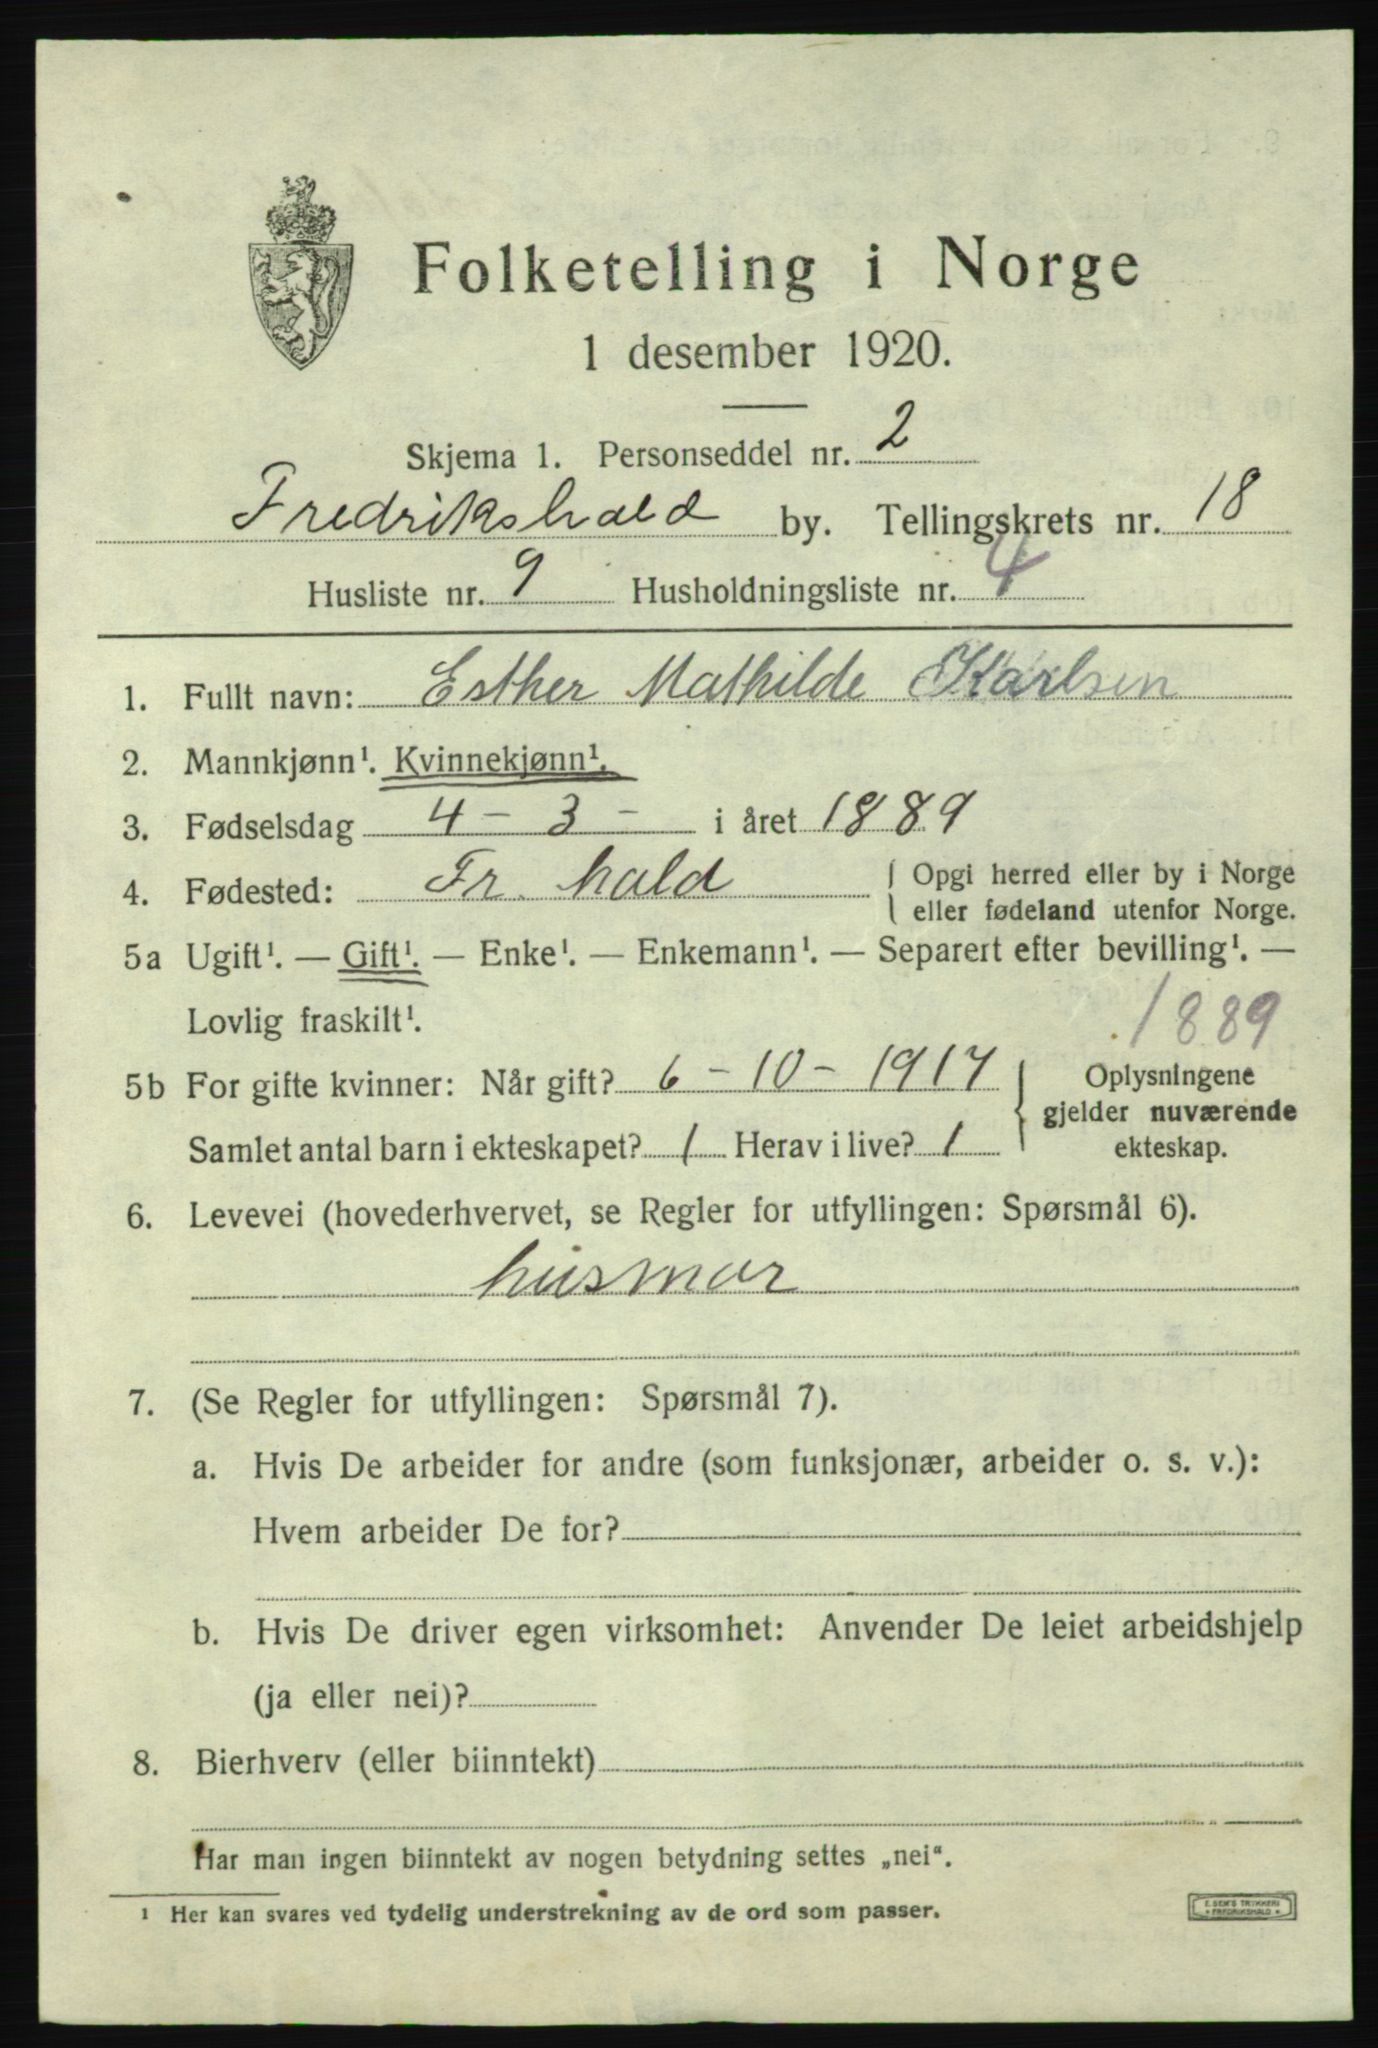 Folketelling i Norge
1 desember 1920.
Skjema 1. Personseddel nr. 2
Fredrikshald by. Tellingskrets nr. 18
Husliste nr. 9 Husholdningsliste nr. 4
1. Fullt navn: Esther Mathilde Karlsen
2. Mannkjønn¹. Kvinnekjønn¹.
3. Fødselsdag 4 - 3 - i året 1889
4. Fødested: Fr. hald { Opgi herred eller by i Norge
eller fødeland utenfor Norge.
5a Ugift¹. — Gift¹. — Enke¹. — Enkemann¹. — Separert efter bevilling¹. —
Lovlig fraskilt¹. 1889
5b For gifte kvinner: Når gift? 6 - 10 - 1917 } Oplysningene
gjelder nuværende
Samlet antal barn i ekteskapet? 1 Herav i live? 1 ekteskap.
6. Levevei (hovederhvervet, se Regler for utfyllingen: Spørsmål 6).
husmor
7. (Se Regler for utfyllingen: Spørsmål 7).
a. Hvis De arbeider for andre (som funksjonær, arbeider o. s. v.):
Hvem arbeider De for?
b. Hvis De driver egen virksomhet: Anvender De leiet arbeidshjelp
(ja eller nei)?
8. Bierhverv (eller biinntekt)
Har man ingen biinntekt av nogen betydning settes „nei“.
¹ Her kan svares ved tydelig understrekning av de ord som passer.
E. SEM'S TRYKKERI
* FREDRIKSHALD *